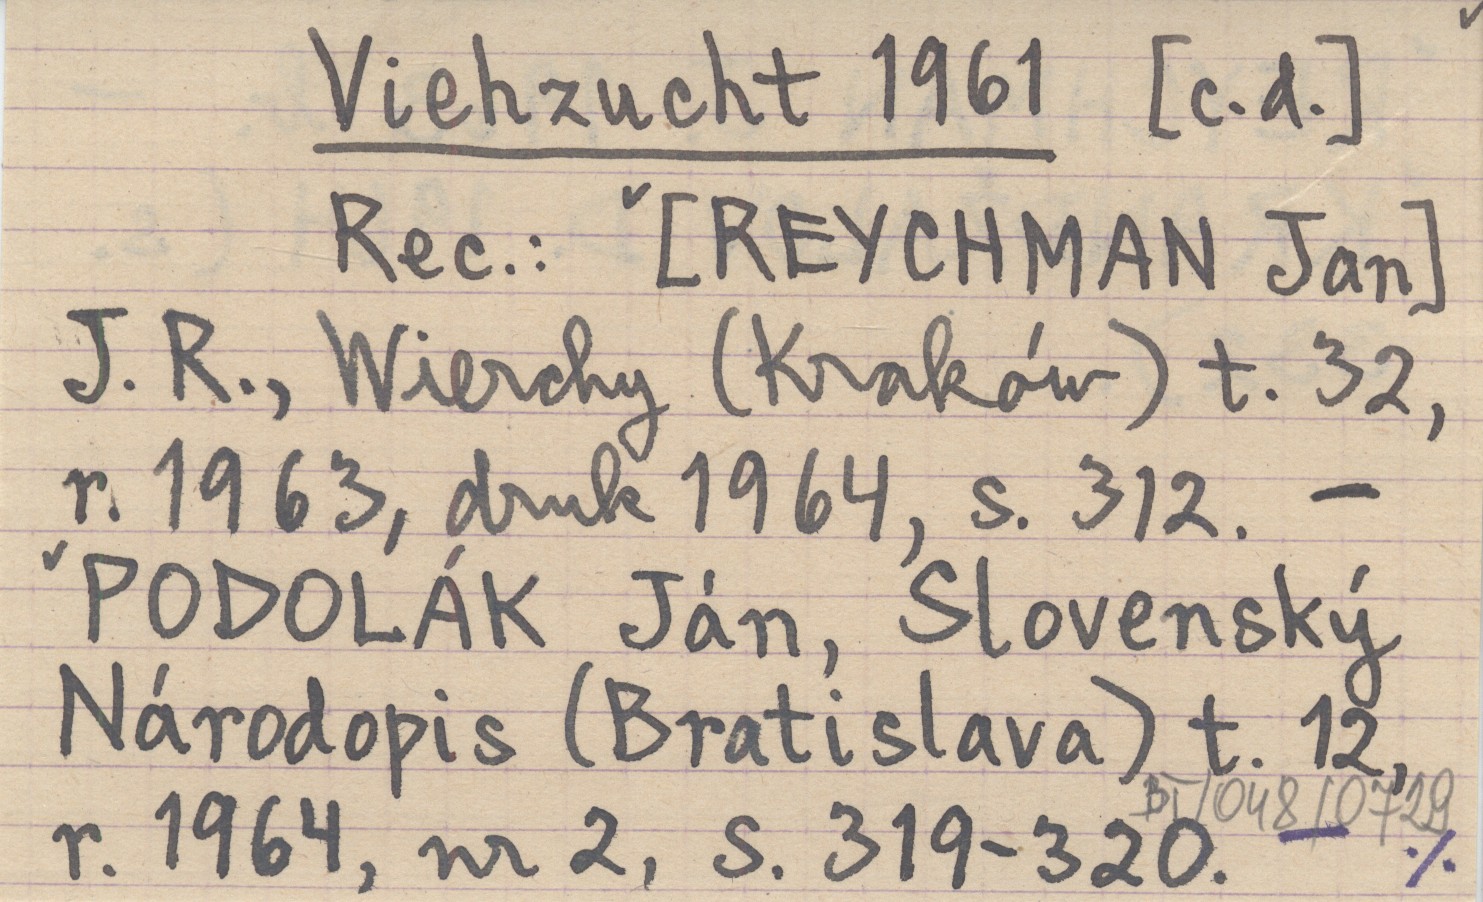 Viehzucht 1961 [c.d.]
Rec.: [REYCHMAN Jan]
J. R., Wierchy (Kraków) t. 32,
r. 1963, druk 1964, s. 312. —
PODOLÁK Ján, Slovenský
Národopis (Bratislava) t. 12,
r. 1964, nr 2, s. 319-320. — ./.
BI/048/0729